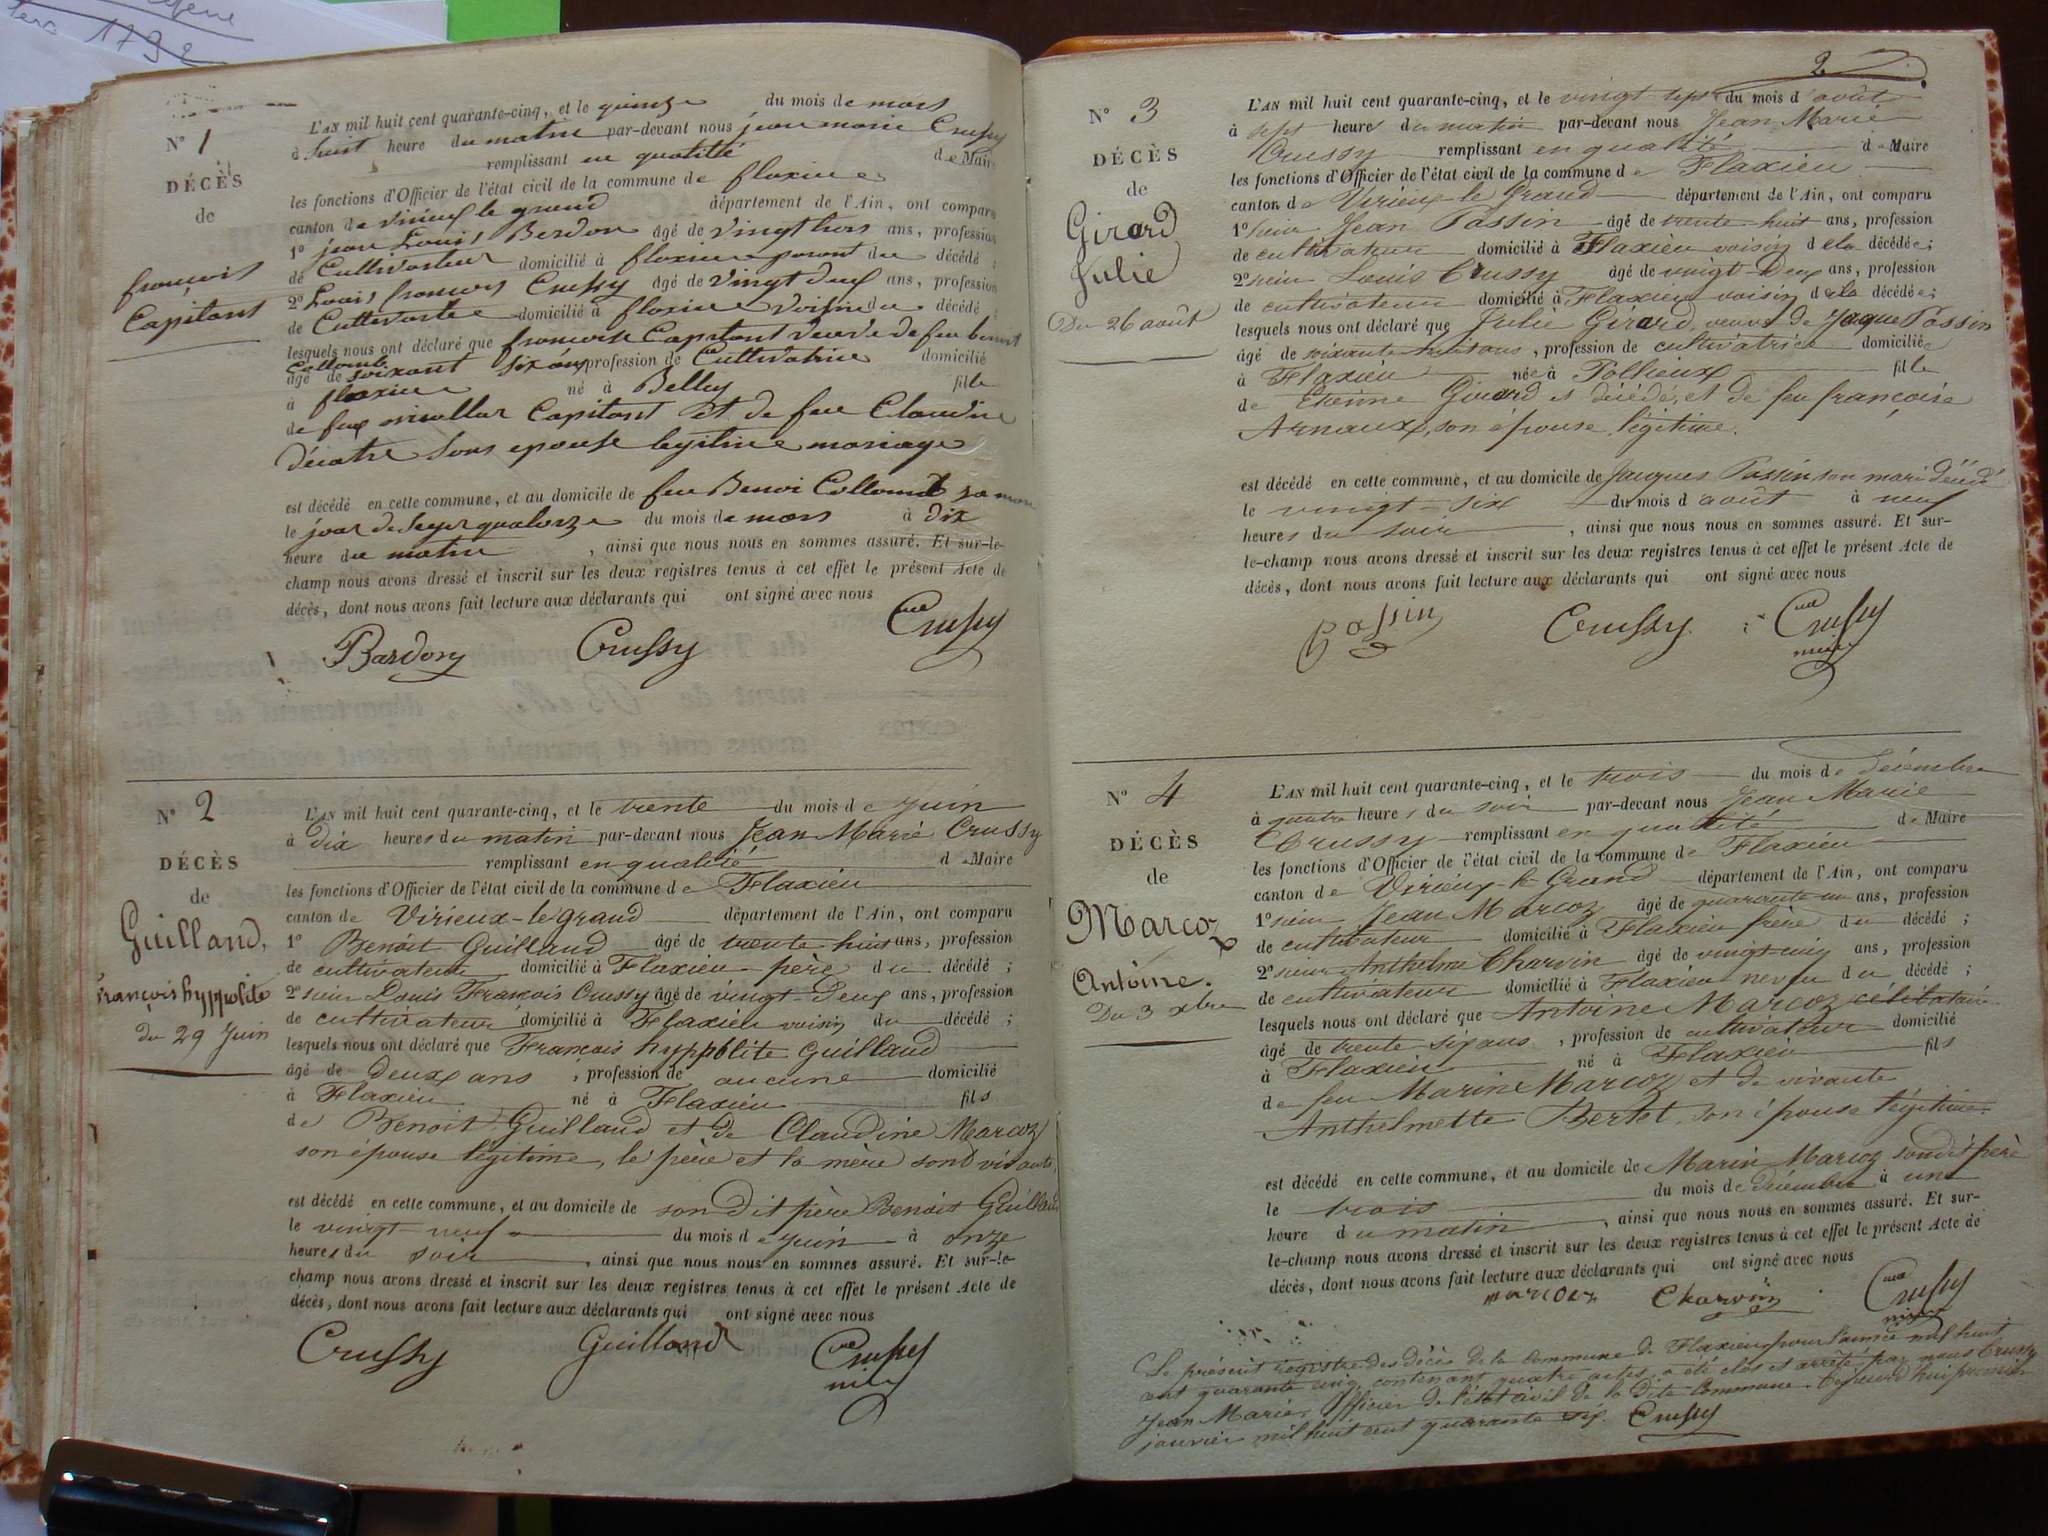 1792
N° 1
DÉCÈS
de
françois
Capitant
L'AN mil huit cent quarante-cinq, et le quinze du mois de mars
à huit heure du matin par-devant nous jean marie Crussy
remplissant en qualité de Maire
les fonctions d'Officier de l'état civil de la commune de flaxieu
canton de virieux le grand département de l'Ain, ont comparu
1° jean Louis Berdon âgé de vingt trois ans, profession
de Cultivateur domicilié à flaxieu parant du décédé ;
2° Louis françois Crussy âgé de vingt deux ans, profession
de Cultivateur domicilié à flaxieu voisin du décédé ;
lesquels nous ont déclaré que françoise Capitant veuve de feu benoit
Collomb
âgé de soixant six ans profession de Cultivatrice domicilié
à flaxieu né à Belley fille
de feu Capitant et de feu Claudine
sous epouse legitime mariage
est décédé en cette commune, et au domicile de feu Benoi Collomb
le jour de hyer quatorze du mois de mars à dix
heure du matin , ainsi que nous nous en sommes assuré. Et sur-le-
champ nous avons dressé et inscrit sur les deux registres tenus à cet effet le présent Acte de
décès, dont nous avons fait lecture aux déclarants qui ont signé avec nous
Bardon Crussy Crussy
N° 2
DÉCÈS
de
Guilland,
françois hyppolite
du 29 Juin
L'AN mil huit cent quarante-cinq, et le trente du mois de Juin
à dix heures du matin par-devant nous Jean Marie Crussy
remplissant en qualité de Maire
les fonctions d'Officier de l'état civil de la commune de Flaxieu
canton de Virieux-le-grand département de l'Ain, ont comparu
1° Benoit Guilland âgé de trente huit ans, profession
de cultivateur domicilié à Flaxieu père du décédé ;
2° sieur Louis François Crussy âgé de vingt-deux ans, profession
de cultivateur domicilié à Flaxieu voisin du décédé ;
lesquels nous ont déclaré que François hyppolite Guilland
âgé de deux ans , profession de aucune domicilié
à Flaxieu né à Flaxieu fils
de Benoit Guilland et de Claudine Marcoz
son épouse légitime, le père et la mère sont vivants,
est décédé en cette commune, et au domicile de son dit père Benoit Guilland
le vingt neuf du mois de Juin à onze
heures du soir , ainsi que nous nous en sommes assuré. Et sur-le-
champ nous avons dressé et inscrit sur les deux registres tenus à cet effet le présent Acte de
décès, dont nous avons fait lecture aux déclarants qui ont signé avec nous
Crussy Guilland Crussy
2
N° 3
DÉCÈS
de
Girard
Julie
Du 26 août
L'AN mil huit cent quarante-cinq, et le vingt sept du mois d'août
à sept heures du matin par-devant nous Jean Marie
Crussy remplissant en qualité de Maire
les fonctions d'Officier de l'état civil de la commune de Flaxieu
canton de Virieux-le Grand département de l'Ain, ont comparu
1° sieur Jean Passin âgé de trente-huit ans, profession
de cultivateur domicilié à Flaxieu voisin de la décédée ;
2° sieur Louis Crussy âgé de vingt-deux ans, profession
de cultivateur domicilié à Flaxieu voisin de la décédée ;
lesquels nous ont déclaré que Julie Girard, veuve de Jaque Passin
âgé de soixante huit ans , profession de cultivatrice domiciliée
à Flaxieu née à Pollieux fille
de Etienne Girard décédé, et de feu françoise
Arnaux, son épouse légitime.
est décédé en cette commune, et au domicile de Jacques Passin son mari décédé
le vingt-six du mois d'août à neuf
heures du soir , ainsi que nous nous en sommes assuré. Et sur-
le-champ nous avons dressé et inscrit sur les deux registres tenus à cet effet le présent Acte de
décès, dont nous avons fait lecture aux déclarants qui ont signé avec nous
Passin Crussy Crussy
maire
N° 4
DÉCÈS
de
Marcoz
Antoine.
Du 3 xbre
L'AN mil huit cent quarante-cinq, et le trois du mois de décembre
à quatre heures du soir par-devant nous Jean Marie
Crussy remplissant en qualité de Maire
les fonctions d'Officier de l'état civil de la commune de Flaxieu
canton de Virieux-le Grand département de l'Ain, ont comparu
1° sieur Jean Marcoz âgé de quarante un ans, profession
de cultivateur domicilié à Flaxieu frère du décédé ;
2° sieur Anthelme Charvin âgé de vingt-cinq ans, profession
de cultivateur domicilié à Flaxieu neveu du décédé ;
lesquels nous ont déclaré que Antoine Marcoz célibataire
âgé de trente six ans , profession de cultivateur domicilié
à Flaxieu né à Flaxieu fils
de feu Marin Marcoz et de vivante
Anthelmette Bertet son épouse légitime.
est décédé en cette commune, et au domicile de Marin Marcoz son dit père
le trois du mois de décembre à une
heure du matin , ainsi que nous nous en sommes assuré. Et sur-
le-champ nous avons dressé et inscrit sur les deux registres tenus à cet effet le présent Acte de
décès, dont nous avons fait lecture aux déclarants qui ont signé avec nous
marcoz Charvin Crussy
Le présent registre des décès de la commune de Flaxieu pour l'année mil huit
cent quarante cinq contenant quatre actes, a été clos et arrêté par nous Crussy
Jean Marie, Officier de l'état civil de la dite commune. Aujourd'hui premier
janvier mil huit cent quarante six. Crussy